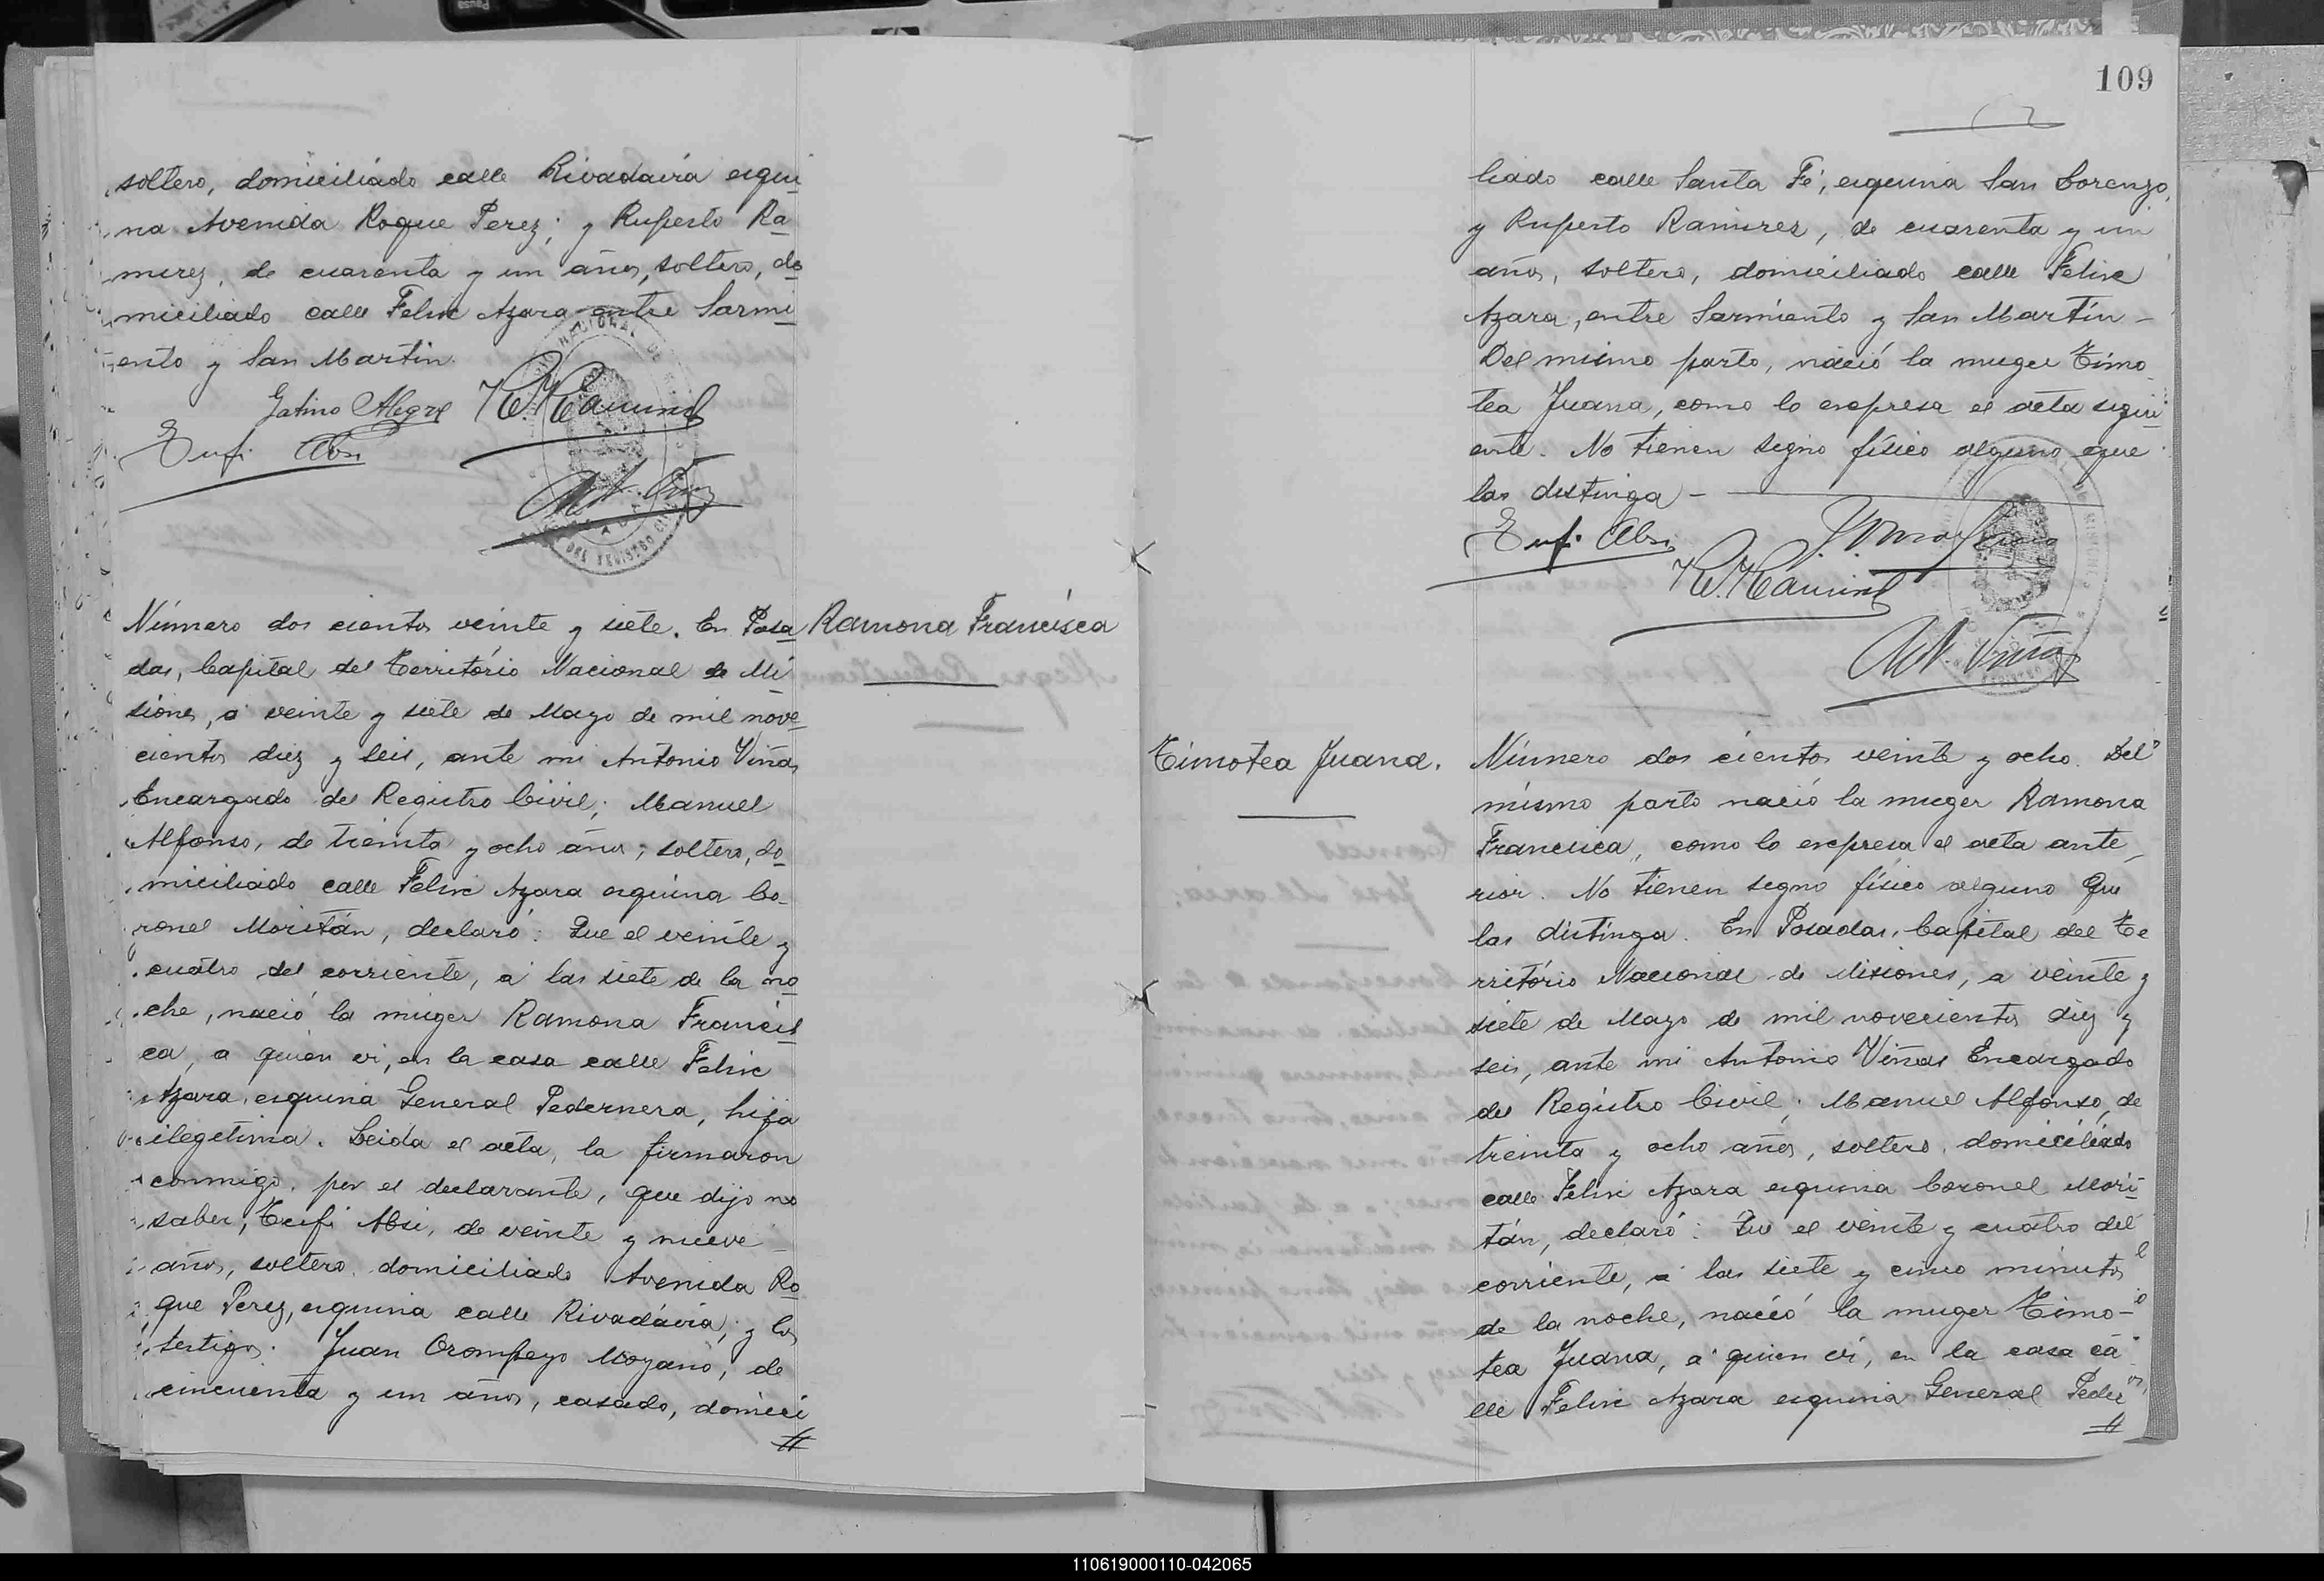 soltero, domiciliado calle Rivadavia esqui
na Avenida Roque Perez; y Ruperto Ra
mirez, de cuarenta y un años, soltero, do
miciliado calle Felix Azara entre Sarmi
ento y San Martin.
Gatino Alegre R. Ramirez
Eufi Absi
Ant. Viñas
Número dos cientos veinte y siete. En Posa
das, Capital del Território Nacional de Mi
siones, a veinte y siete de Mayo de mil nove
cientos diez y seis, ante mi Antonio Viñas
Encargado del Registro Civil; Manuel
Alfonso, de treinta y ocho años, soltero, do
miciliado calle Felix Azara esquina Co-
ronel Moritán, declaró: Que el veinte y
cuatro del corriente, a las siete de la no
che, nació la muger Ramona Francis
ca, a quien vi, en la casa calle Felix
Azara, esquina General Pedernera, hija
ilegetima. Leida el acta, la firmaron
conmigo, por el declarante, que dijo no
saber, Eufi Absi, de veinte y nueve
años, soltero, domiciliado Avenida Ro
que Perez, esquina calle Rivadávia; y los
testigos: Juan Orompeyo Moyano, de
cincuenta y un años, casado, domici
#
Ramona Francisca
109
liado calle Santa Fé, esquina San Lorenzo,
y Ruperto Ramirez, de cuarenta y un
años, soltero, domiciliado calle Felix
Azara, entre Sarmiento y San Martín -
Del mismo parto, nació la muger Timo
tea Juana, como lo expresa el acta sigui
ente. No tienen segno físico alguno que
las distinga -
Eufi Absi
R. Ramirez
Ant. Viñas
Timotea Juana.
Número dos cientos veinte y ocho. Del
mismo parto nació la muger Ramona
Francisca, como lo expresa el acta ante_
rior. No tienen segno físico alguno que
las distinga. En Posadas, Capital del Te
rritório Nacional de Misiones, a veinte y
siete de Mayo de mil novecientos diez y
seis, ante mi Antonio Viñas Encargado
del Registro Civil; Manuel Alfonso, de
treinta y ocho años, soltero, domiciliado
calle Felix Azara esquina Coronel Mori
tán, declaró: Que el veinte y cuatro del
corriente, a las siete y cinco minutos
de la noche, nació la muger Timo-
tea Juana, a quien vi, en la casa ca
lle Felix Azara esquina General Peder
#
110619000110-042065